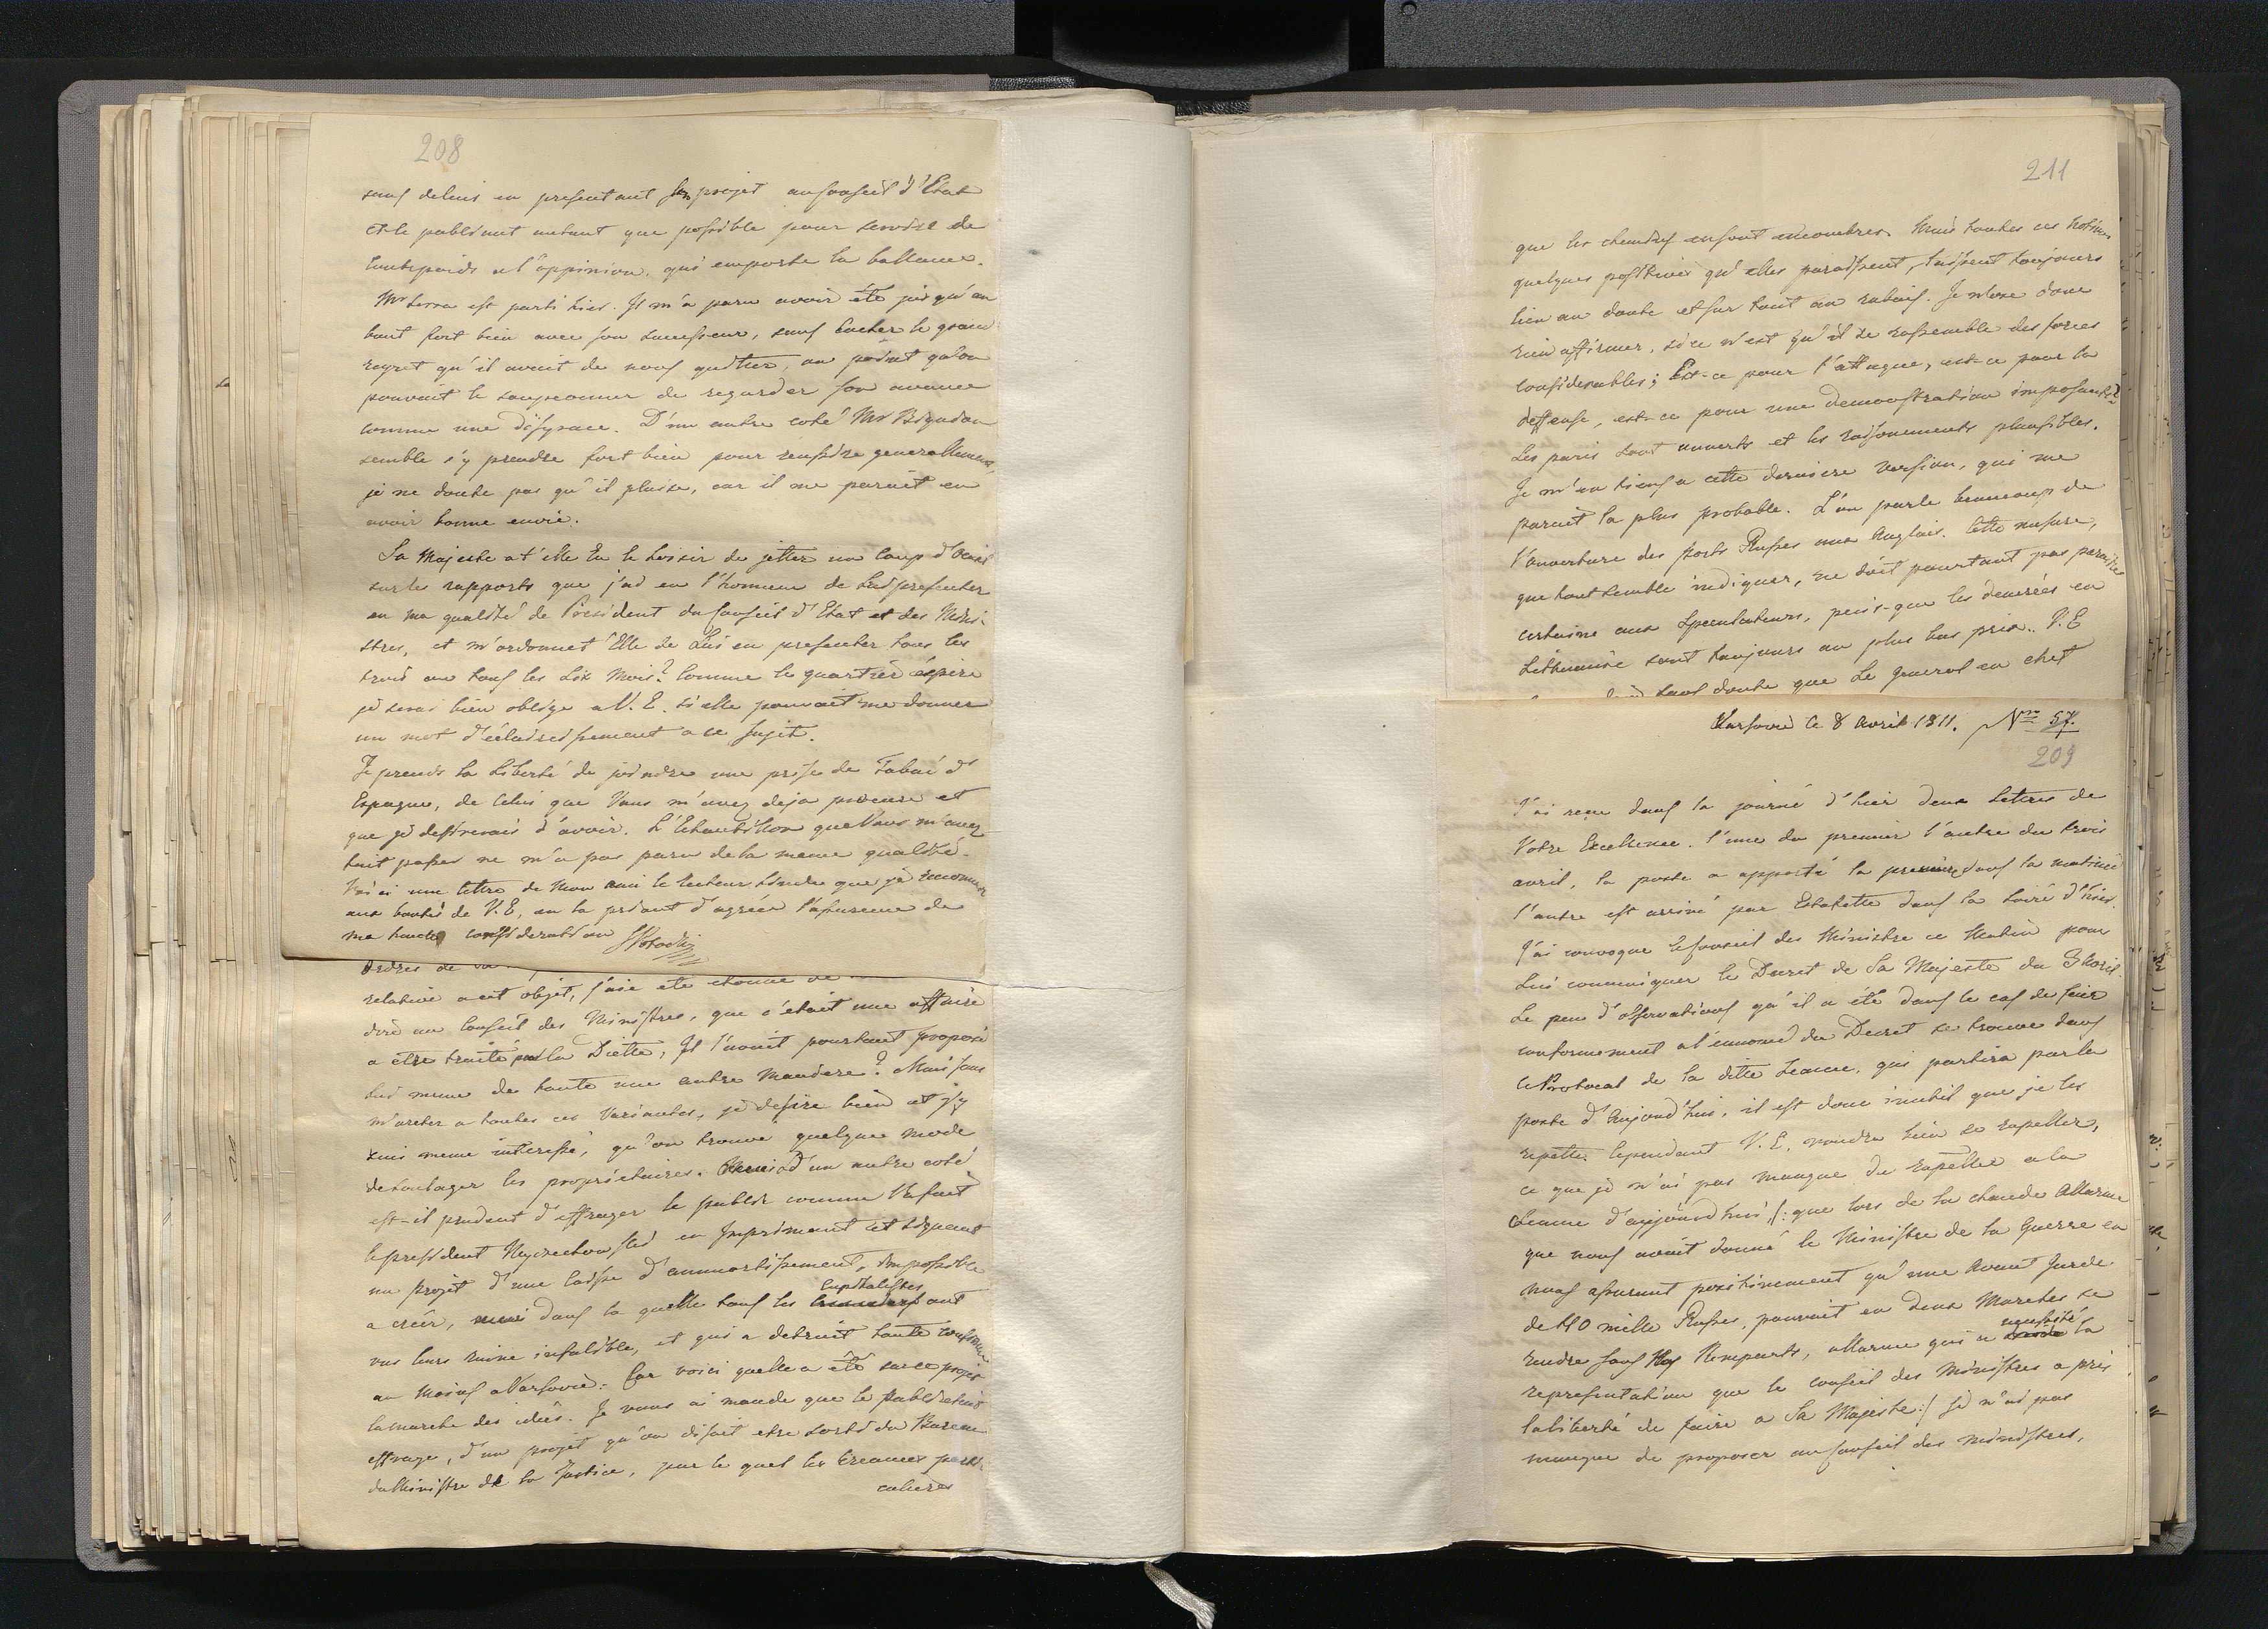 208
sauf delui en presentant son projet au conseil d'Etat
et le publiant autant que possible pour servire de
contrepoids a l'oppinion, qui emporte la ballance.
Mr Serra est parti hier. Il m'a paru avoir été jusqu'au
bout fort bien avec son successeur, sauf cacher le grand
regret qu'il avait de nous quitter, au point qu'on
pouvait le soupconner de regarder son avance
comme une disgrace. D'un autre coté Mr Bignon
semble s'y prendre fort bien pour reussire generallement,
je ne doute pas qu'il plaise, car il me parait en
avoir bonne envie.
Sa Majeste at'elle Eu le Loisir de jetter un coup d'oeuil
sur les rapports que j'ai eu l'honneur de Lui presenter
en ma qualité de President du Conseil d'Etat et des Mini-
stres, et m'ordonnet'Elle de Lui en presenter tous les
trois ou tous les six Mois? Comme le quartier éxpire
je serai bien obligé a V. E. si elle pouvait me donner
un mot d'éclaircissement a ce sujet.
Je prends la Liberté de joindre une prise de Tabac d'
Espagne, de celui que Vous m'avez deja procuré et
que je desirerais d'avoir. L'Echantillon que Vous m'avez
fait passer ne m'a pas paru de la meme qualité.
Voici une lettre de Mon ami le lecteur Linde que je recommande
aux bontés de V. E, en la priant d'agréer l'assurance de
ma haute consideration SPotocki
Ordres de
relative a cet objet, j'aie été etonné de
dire au Conseil des Ministres, que c'était une affaire
a etre traité par la Diette, Il l'avait pourtant proposé
lui meme de toute une autre Maniere? Mais sans
m'areter a toutes ces Variantes, je desire bien et j'y
suis meme interessé, qu'on trouve quelque mode
de soulager les propriétaires. Mais d'un autre coté
est-il prudent d'effrayer le public comme l'a fait
le president en Imprimant et signant
un projet d'une Caisse d'ammortissement, impossible
a créer, mais dans la quelle tous les Capitalistes ont
vus leurs ruine infalible, et qui a detruit toute confiance
au Moins a Varsovie. Car voici quelle a été sur ce projet
la marche des idées. Je vous ai mandé que le public etait
effrayé, d'un projet qu'on disait etre sorti du Bureau
du Ministre de la Justice, par le quel les Creances parti-
culieres
211
que les chemins en sont encombres. Mais toutes ces notions
quelques positives qu'elles paraissent, laissent toujours
lieu au doute et sur tout au rabais. Je n'ose donc
rien affirmer, si ce n'est qu'il se rassemble des forces
considerables; Est-ce pour l'attaque, est-ce pour la
deffense, est-ce pour une demonstration imposante?
Les paris sont ouverts et les raisonements plausibles.
Je m'en tiens a cette derniere version, qui me
parait la plus probable. L'on parle beaucoup de
l'ouverture des ports Russes aux Anglais. Cette mesure,
que tout semble indiquer, ne doit pourtant pas paraitre
certaine aux Speculateurs, puis-que les denrées en
Lithuanie sont toujours au plus bas prix. V. E
sans doute que Le General en chef
Varsovie le 8 Avril 1811. Nro 57.
209
J'ai reçu dans la journé d'hier deux lettres de
Votre Excellence. l'une du premier l'autre du trois
avril, la poste a apporté la premiere dans la matinée
l'autre est arrivé par Estafette dans la soiré d'hier.
J'ai convoque le Conseil des Ministre ce Matin pour
Lui comuniquer le Decret de Sa Majeste du 3 Avril.
Le peu d'observations qu'il a été dans le cas de faire
conformement a l'ennoncé du Decret se trouve dans
le Protocol de la ditte seance, qui partira par la
poste d'aujourd'hui, il est donc inutil que je les
repette. Cependant V. E. voudra bien se rapeller,
ce que je n'ai pas manque de rapeller a la
seance d'aujourd'hui /: que lors de la chaude Allarme
que nous avait donné le Ministre de la Guerre en
nous assurant positivement qu'une Avant Garde
de 40 mille Russes, pouvait en deux Marches se
rendre sous Nos Remparts, allarme qui a necessité la
representation que le conseil des Ministres a pris
la liberté de faire a Sa Majeste :/ je n'ai pas
manque de proposer au Conseil des ministres,